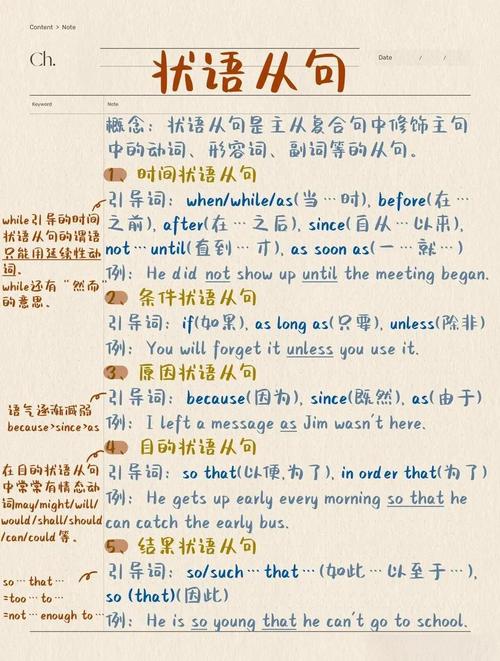 Content > Note
Ch.
状语从句
Date / /
Keyword
Note
概念：状语从句是主从复合句中修饰主句
中的动词、形容词、副词等的从句。
1、时间状语从句
引导词：when/while/as(当…时), before(在…
之前), after(在…之后), since(自从…以来),
not…until(直到…才), as soon as(一…就…)
例：He did not show up until the meeting began.
while引导的时间
状语从句的谓语
只能用延续性动
词。
while还有“然而”
的意思。
2、条件状语从句
引导词：if(如果), as long as(只要), unless(除非)
例：You will forget it unless you use it.
3、原因状语从句
引导词：because(因为), since(既然), as(由于)
例：I left a message as Jim wasn't here.
语气逐渐减弱
because>since>as
4、目的状语从句
引导词：so that(以便,为了), in order that(为了)
例：He gets up early every morning so that he
can catch the early bus.
在目的状语从句
中常常有情态动
词may/might/will/
would/shall/should
/can/could 等。
5、结果状语从句
引导词：so/such…that…(如此…以至于…),
so (that)(因此)
例：He is so young that he can't go to school.
so…that…
=too…to…
=not…enough to…